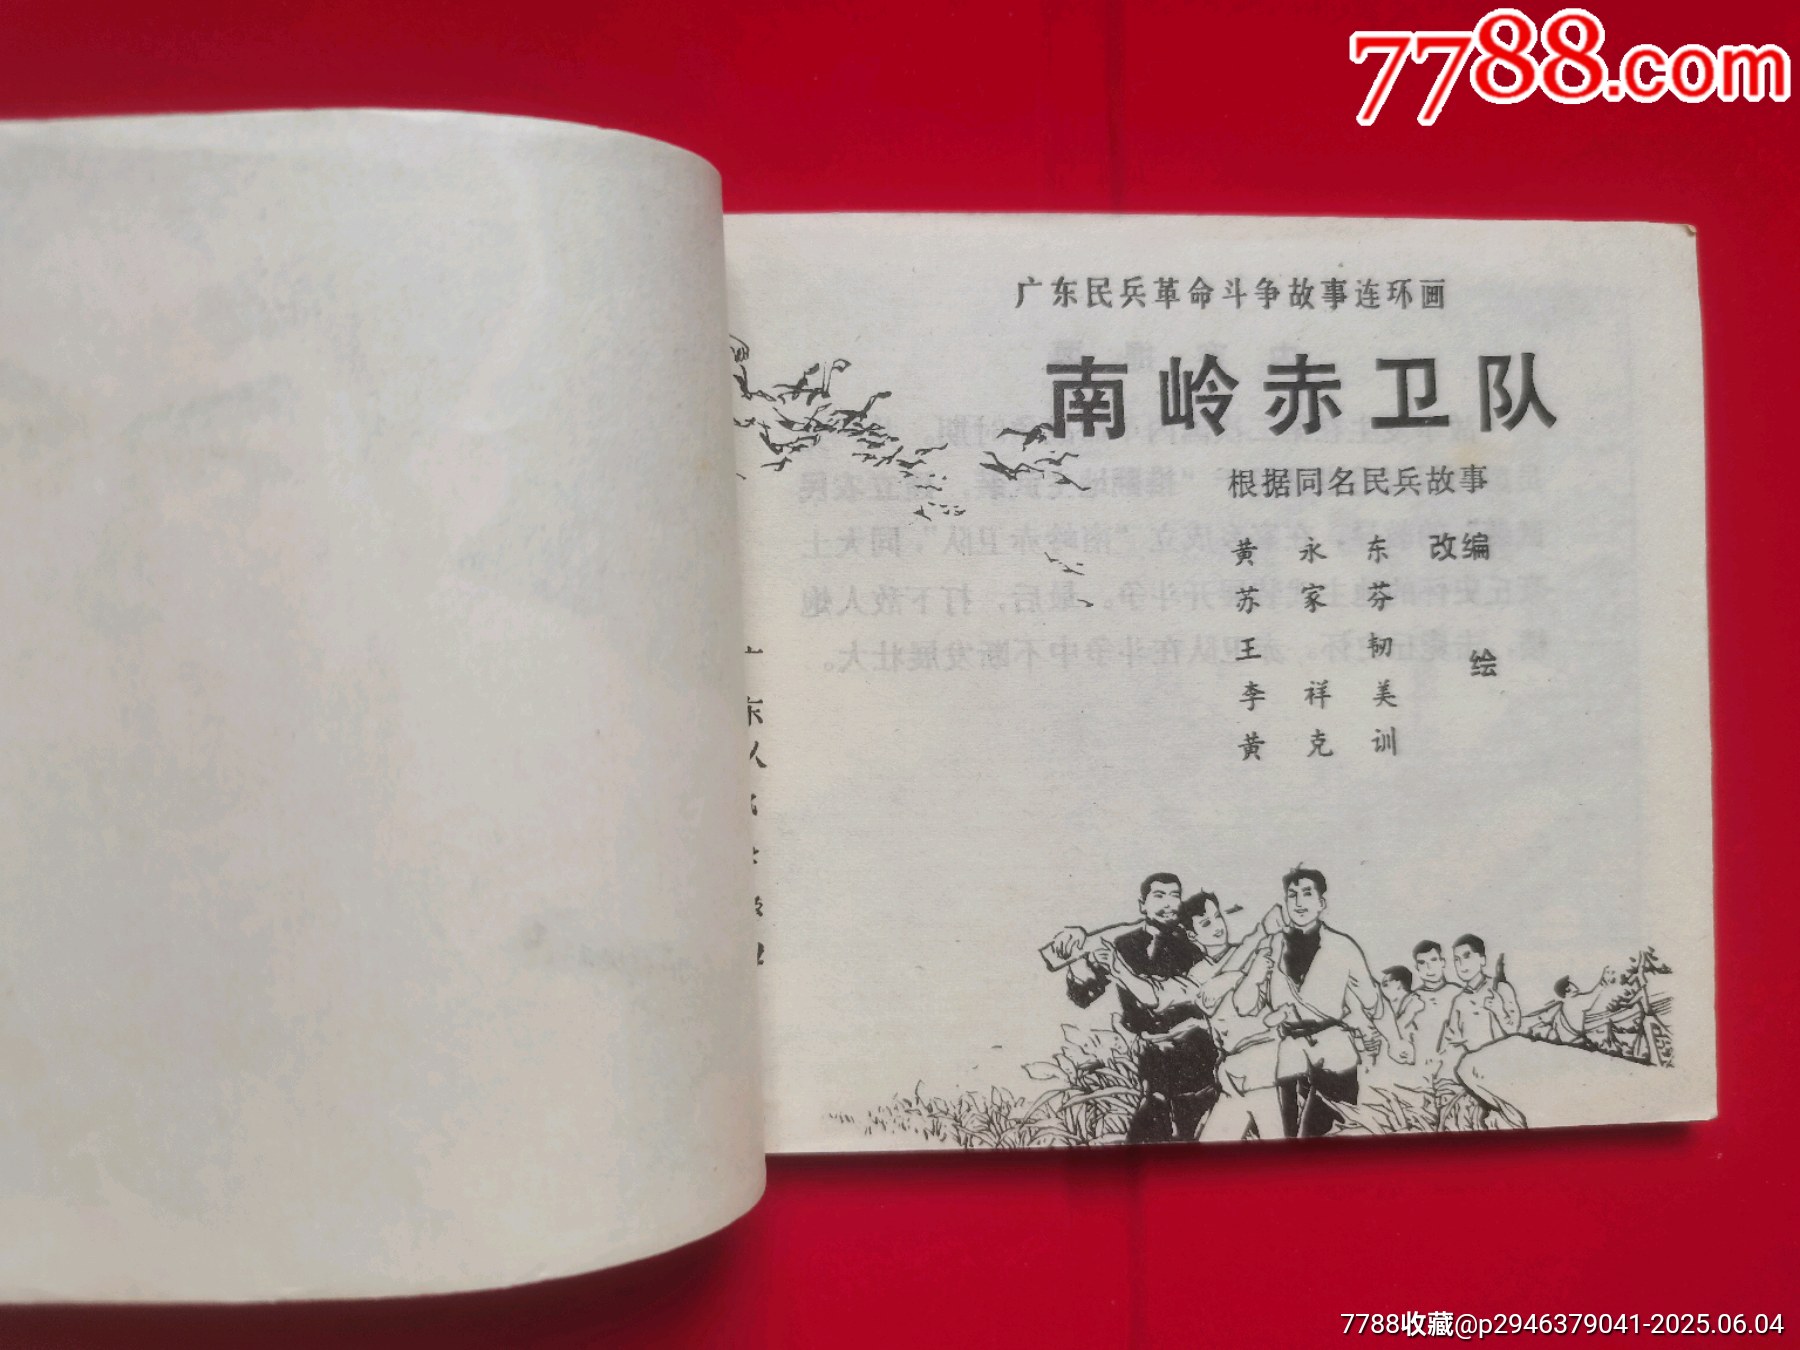 7788.com
广东民兵革命斗争故事连环画
南岭赤卫队
根据同名民兵故事
黄永东 改编
苏家芬
王韧
绘
李祥美
黄克训
7788收藏@p2946379041-2025.06.04